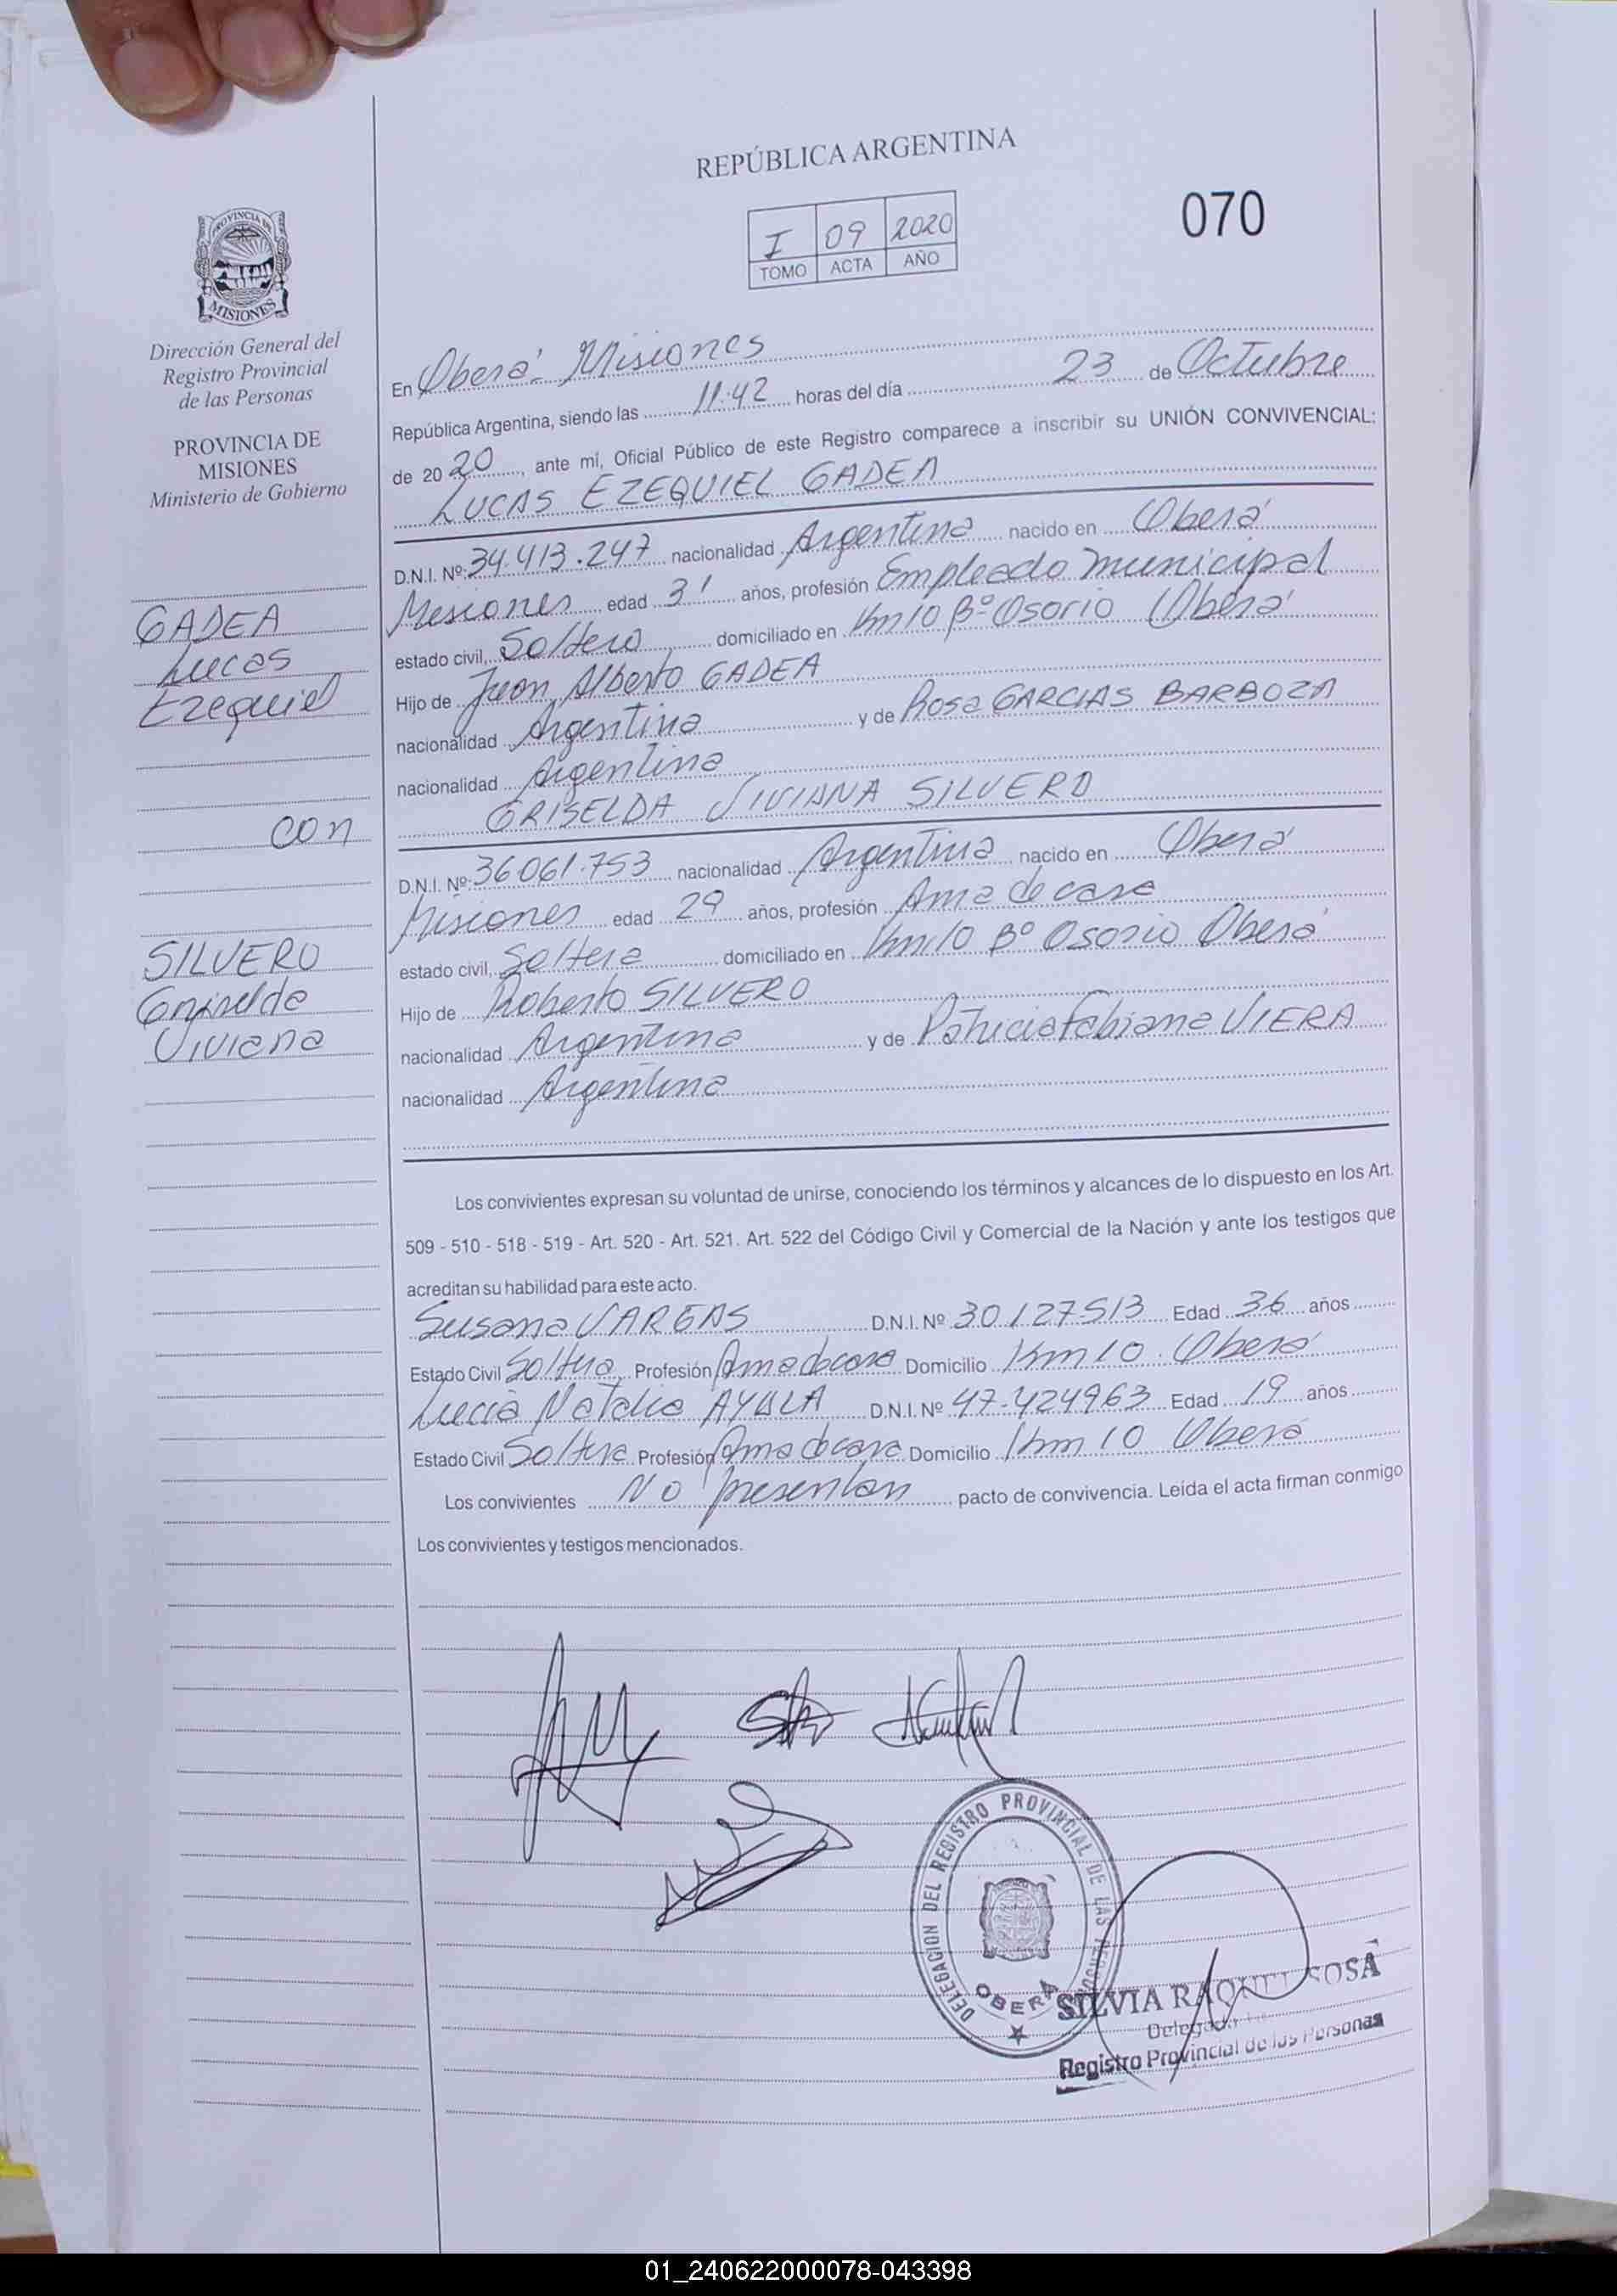 REPÚBLICA ARGENTINA
070
I 09 2020
TOMO ACTA AÑO
PROVINCIA DE
MISIONES
Dirección General del
Registro Provincial
de las Personas
PROVINCIA DE
MISIONES
Ministerio de Gobierno
GADEA
Lucas
Ezequiel
con
SILVERO
Griselda
Viviana
En Oberá - Misiones
República Argentina, siendo las 11:42 horas del día 23 de Octubre
de 20 20, ante mí, Oficial Público de este Registro comparece a inscribir su UNIÓN CONVIVENCIAL:
LUCAS EZEQUIEL GADEA
D.N.I. Nº: 34.413.247 nacionalidad Argentina nacido en Oberá
Misiones edad 31 años, profesión Empleado municipal
estado civil, Soltero domiciliado en Km 10 Bº Osorio Oberá
Hijo de Juan Alberto GADEA
nacionalidad Argentina y de Rosa GARCIAS BARBOZA
nacionalidad Argentina
GRISELDA VIVIANA SILVERO
D.N.I. Nº: 36.061.753 nacionalidad Argentina nacido en Oberá
Misiones edad 29 años, profesión Ama de casa
estado civil, Soltera domiciliado en Km 10 Bº Osorio Oberá
Hijo de Roberto SILVERO
nacionalidad Argentina y de Patricia Fabiana VIERA
nacionalidad Argentina
Los convivientes expresan su voluntad de unirse, conociendo los términos y alcances de lo dispuesto en los Art.
509 - 510 - 518 - 519 - Art. 520 - Art. 521. Art. 522 del Código Civil y Comercial de la Nación y ante los testigos que
acreditan su habilidad para este acto.
Susana VARGAS D.N.I. Nº 30.127513 Edad 36 años
Estado Civil Soltera Profesión Ama de casa Domicilio Km 10 Oberá
Lucía Natalia AYALA D.N.I. Nº 47.424963 Edad 19 años
Estado Civil Soltera Profesión Ama de casa Domicilio Km 10 Oberá
Los convivientes No presentan pacto de convivencia. Leída el acta firman conmigo
Los convivientes y testigos mencionados.
DELEGACION DEL REGISTRO PROVINCIAL DE LAS PERSONAS
OBERA
SILVIA RAQUEL SOSA
Registro Provincial de las Personas
01_240622000078-043398